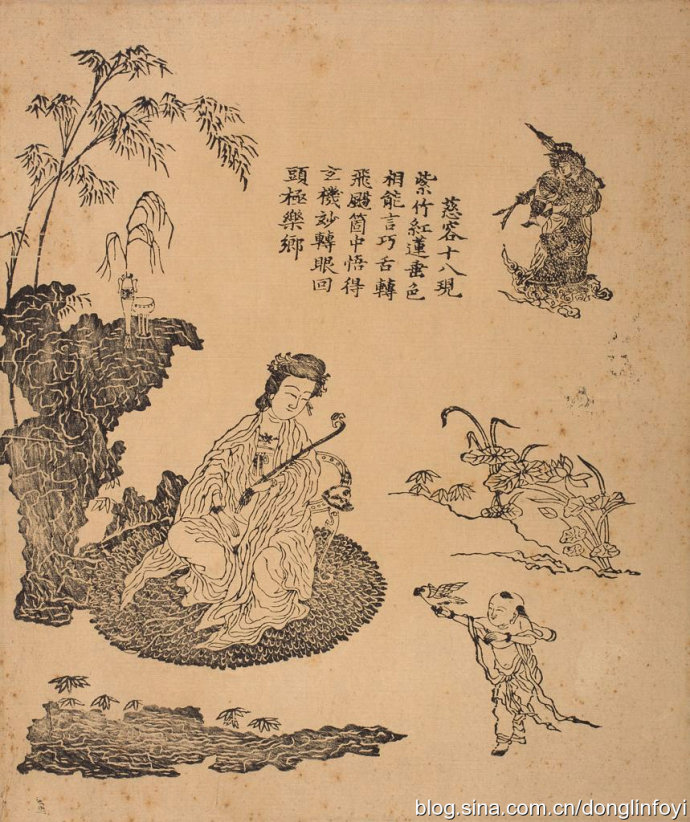 慈容十八現
紫竹紅蓮垂色
相能言巧舌轉
飛颺箇中悟得
玄機妙轉眼回
頭極樂鄉
blog.sina.com.cn/donglinfoyi